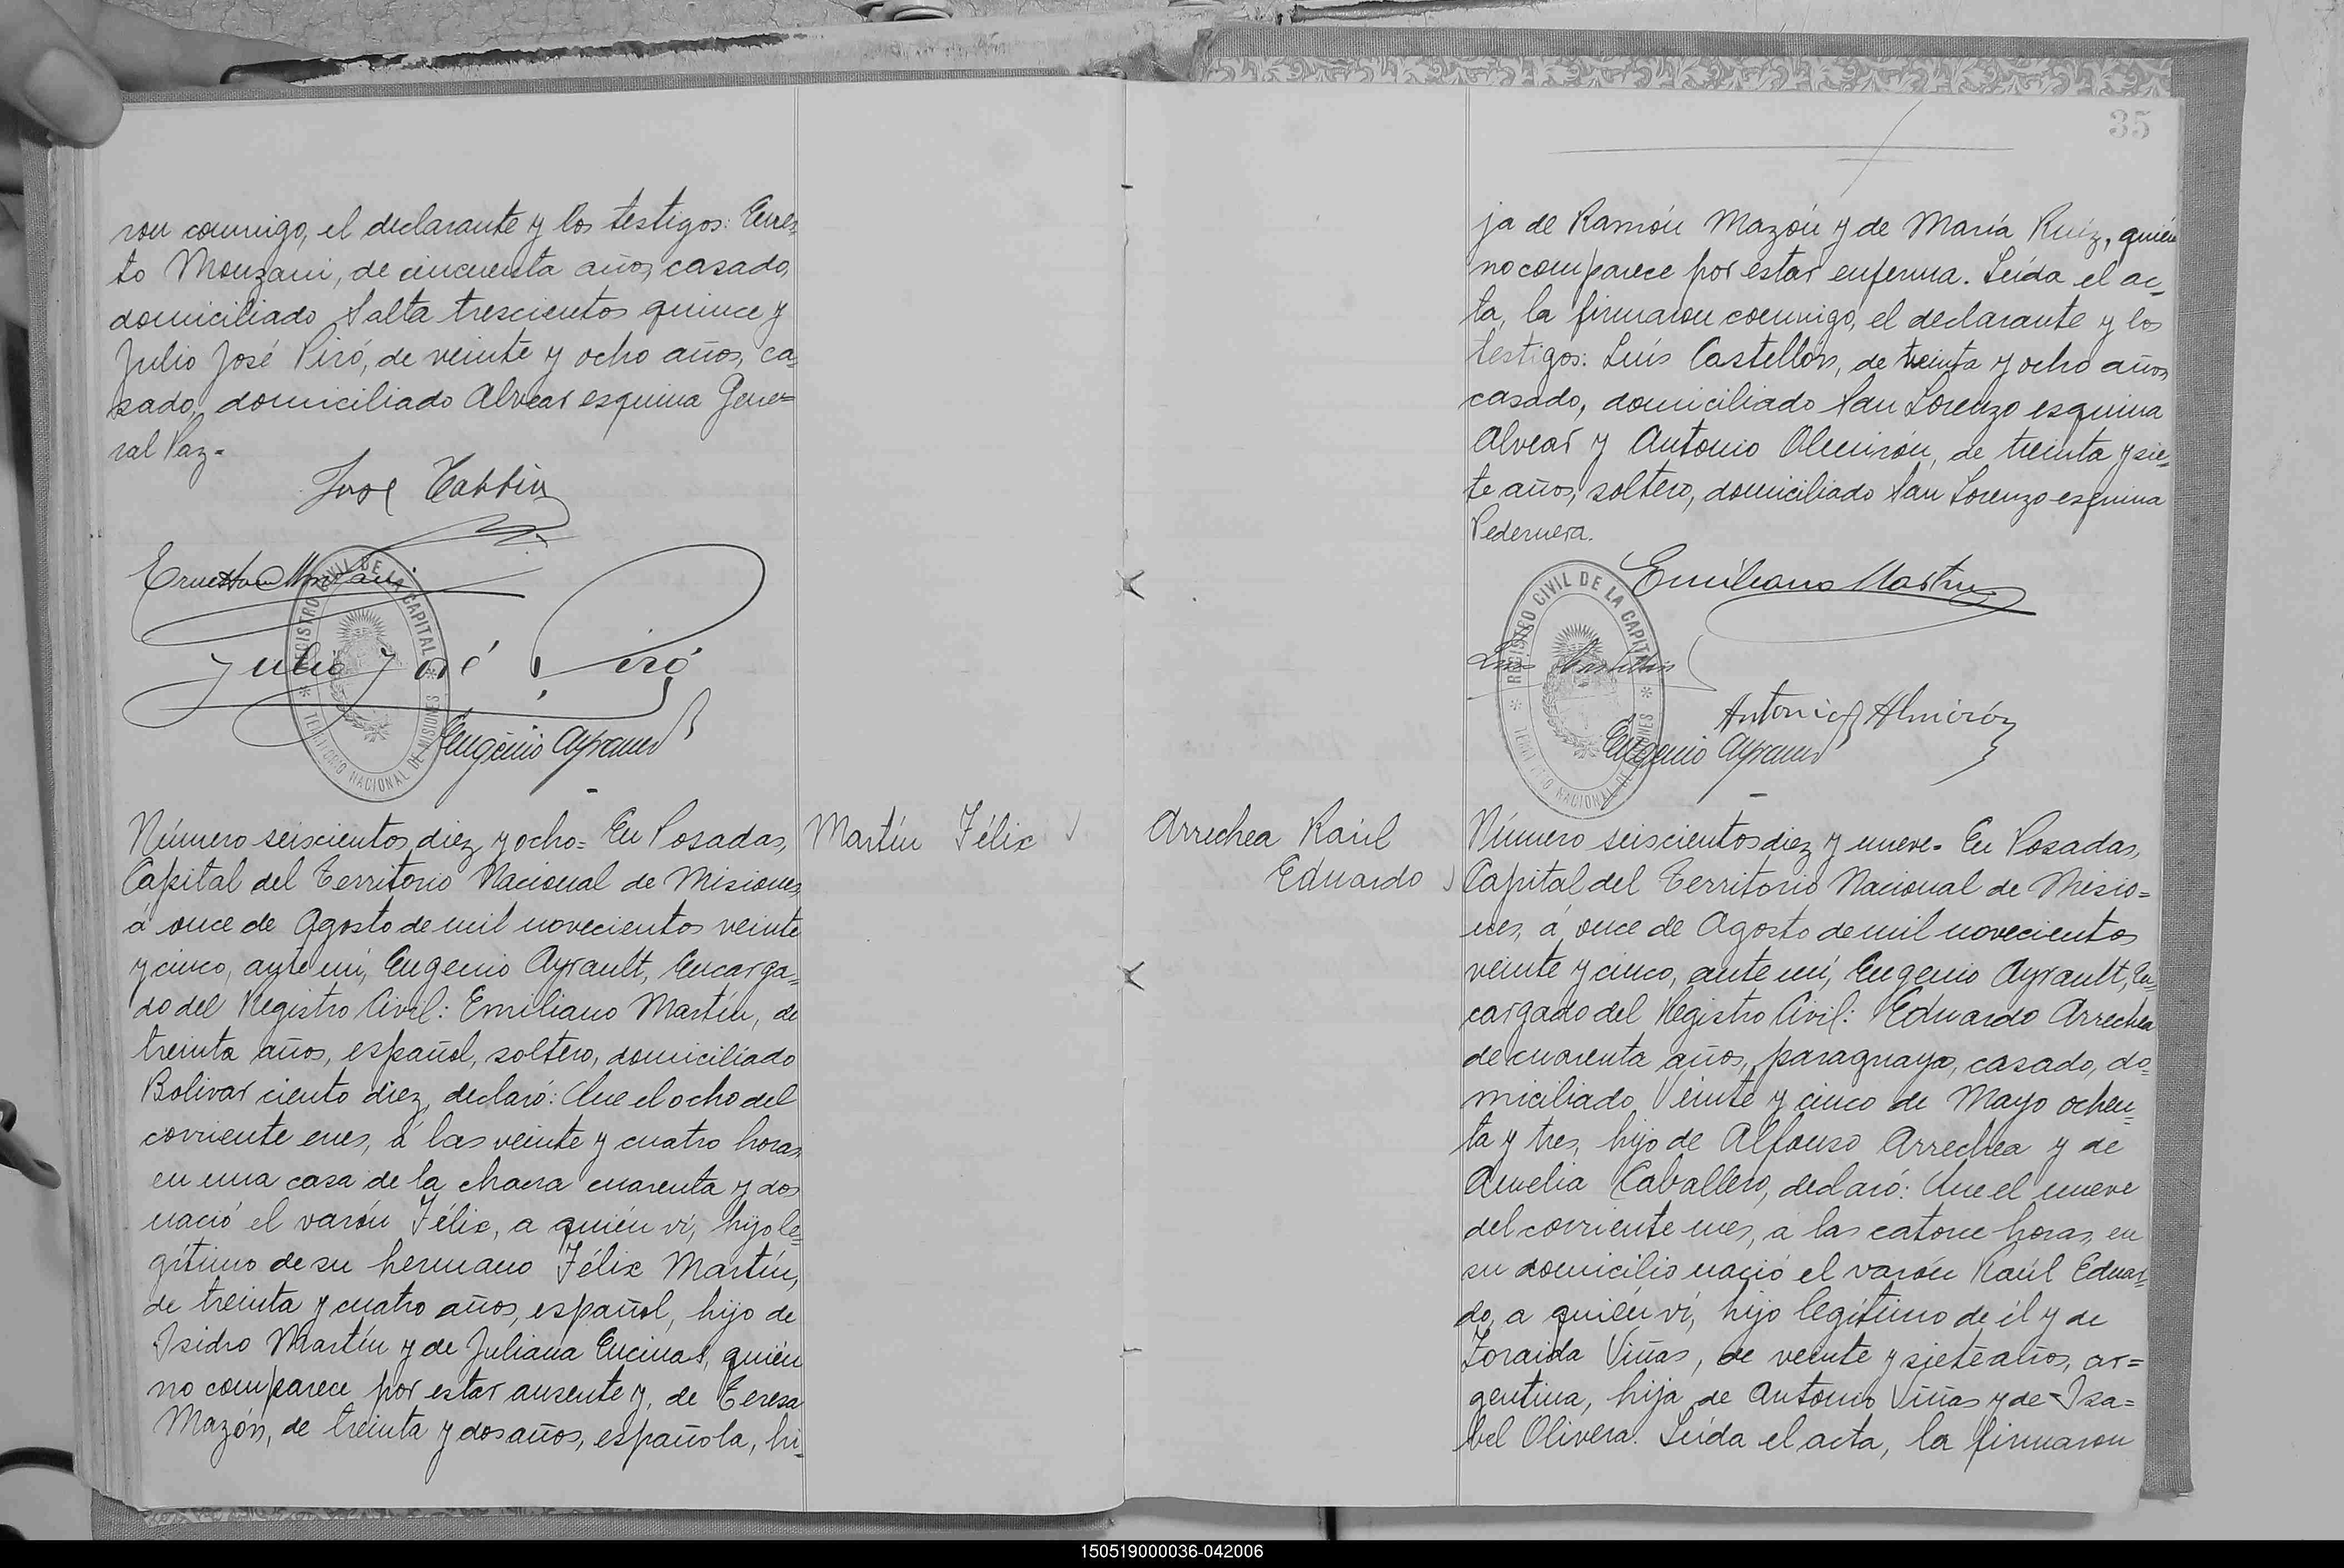 ron conmigo, el declarante y los testigos: Ernes-
to Monzani, de cincuenta años, casado,
domiciliado Salta trescientos quince y
Julio José Piró, de veinte y ocho años, ca-
sado, domiciliado Alvear esquina Gene-
ral Paz.
José
Ernesto Monzani
Julio José Piró
Eugenio Ayrault
REGISTRO CIVIL DE LA CAPITAL
TERRITORIO NACIONAL DE MISIONES
Martín Félix
Número seiscientos diez y ocho= En Posadas,
Capital del Territorio Nacional de Misiones,
á once de Agosto de mil novecientos veinte
y cinco, ante mí, Eugenio Ayrault, Encarga-
do del Registro Civil: Emiliano Martín, de
treinta años, español, soltero, domiciliado
Bolivar ciento diez, declaró: Que el ocho del
corriente mes, á las veinte y cuatro horas,
en una casa de la chacra cuarenta y dos
nació el varón Félix, a quién ví, hijo le-
gítimo de su hermano Félix Martín,
de treinta y cuatro años, español, hijo de
Isidro Martín y de Juliana Encinas, quién
no comparece por estar ausente y, de Teresa
Mazón, de treinta y dos años, española, hi-
35
ja de Ramón Mazón y de María Ruíz, quién
no comparece por estar enferma. Leída el ac-
ta, la firmaron conmigo, el declarante y los
testigos: Luís Castellón, de treinta y ocho años
casado, domiciliado San Lorenzo esquina
Alvear y Antonio Almirón, de treinta y sie-
te años, soltero, domiciliado San Lorenzo esquina
Pedernera.
Emiliano Martin
Luis Castellón
Antonio Almirón
Eugenio Ayrault
REGISTRO CIVIL DE LA CAPITAL
TERRITORIO NACIONAL DE MISIONES
Arrechea Raúl
Eduardo
Número seiscientos diez y nueve. En Posadas,
Capital del Territorio Nacional de Misio=
nes, á once de Agosto de mil novecientos
veinte y cinco, ante mí, Eugenio Ayrault, En-
cargado del Registro Civil: Eduardo Arrechea
de cuarenta años, paraguayo, casado, do-
miciliado Veinte y cinco de Mayo ochen-
ta y tres, hijo de Alfonso Arrechea y de
Amelia Caballero, declaró: Que el nueve
del corriente mes, a las catorce horas, en
su domicilio nació el varón Raúl Eduar-
do, a quién ví, hijo legítimo de él y de
Zoraida Viñas, de veinte y siete años, ar=
gentina, hija de Antonio Viñas y de Isa=
bel Olivera. Leída el acta, la firmaron
150519000036-042006